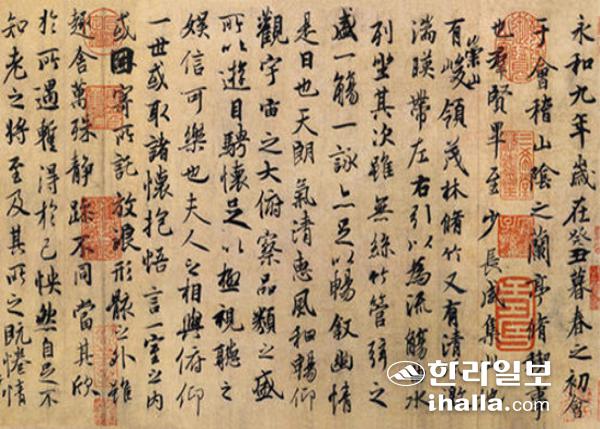 永和九年歲在癸丑暮春之初會
于會稽山陰之蘭亭脩稧事
也群賢畢至少長咸集此地
崇山
有峻領茂林脩竹又有清流激
湍暎帶左右引以為流觴曲水
列坐其次雖無絲竹管弦之
盛一觴一詠亦足以暢敘幽情
是日也天朗氣清惠風和暢仰
觀宇宙之大俯察品類之盛
所以遊目騁懷足以極視聽之
娛信可樂也夫人之相與俯仰
一世或取諸懷抱悟言一室之內
或因寄所託放浪形骸之外雖
趣舍萬殊靜躁不同當其欣
於所遇暫得於己怏然自足不
知老之將至及其所之既惓情
한라일보
ihalla.com